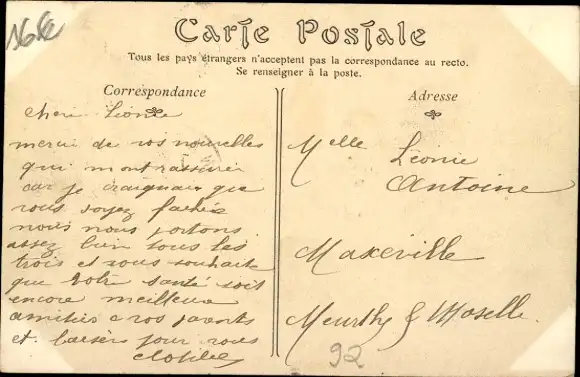 16 
Carte Postale
Tous les pays étrangers n'acceptent pas la correspondance au recto.
Se renseigner à la poste.
Correspondance
Adresse
cheri Léonie
merci de vos nouvelles
qui mont rassurer
car je craignais que
vous soyez fachée
nous nous portons
assez bien tous les
trois et vous souhaite
que votre santé soit
encore meilleure
amitiés a vos parents
et baisers pour vous
Clotilde
Melle Léonie
Antoine
Maxeville
Meurthe & Moselle.
92